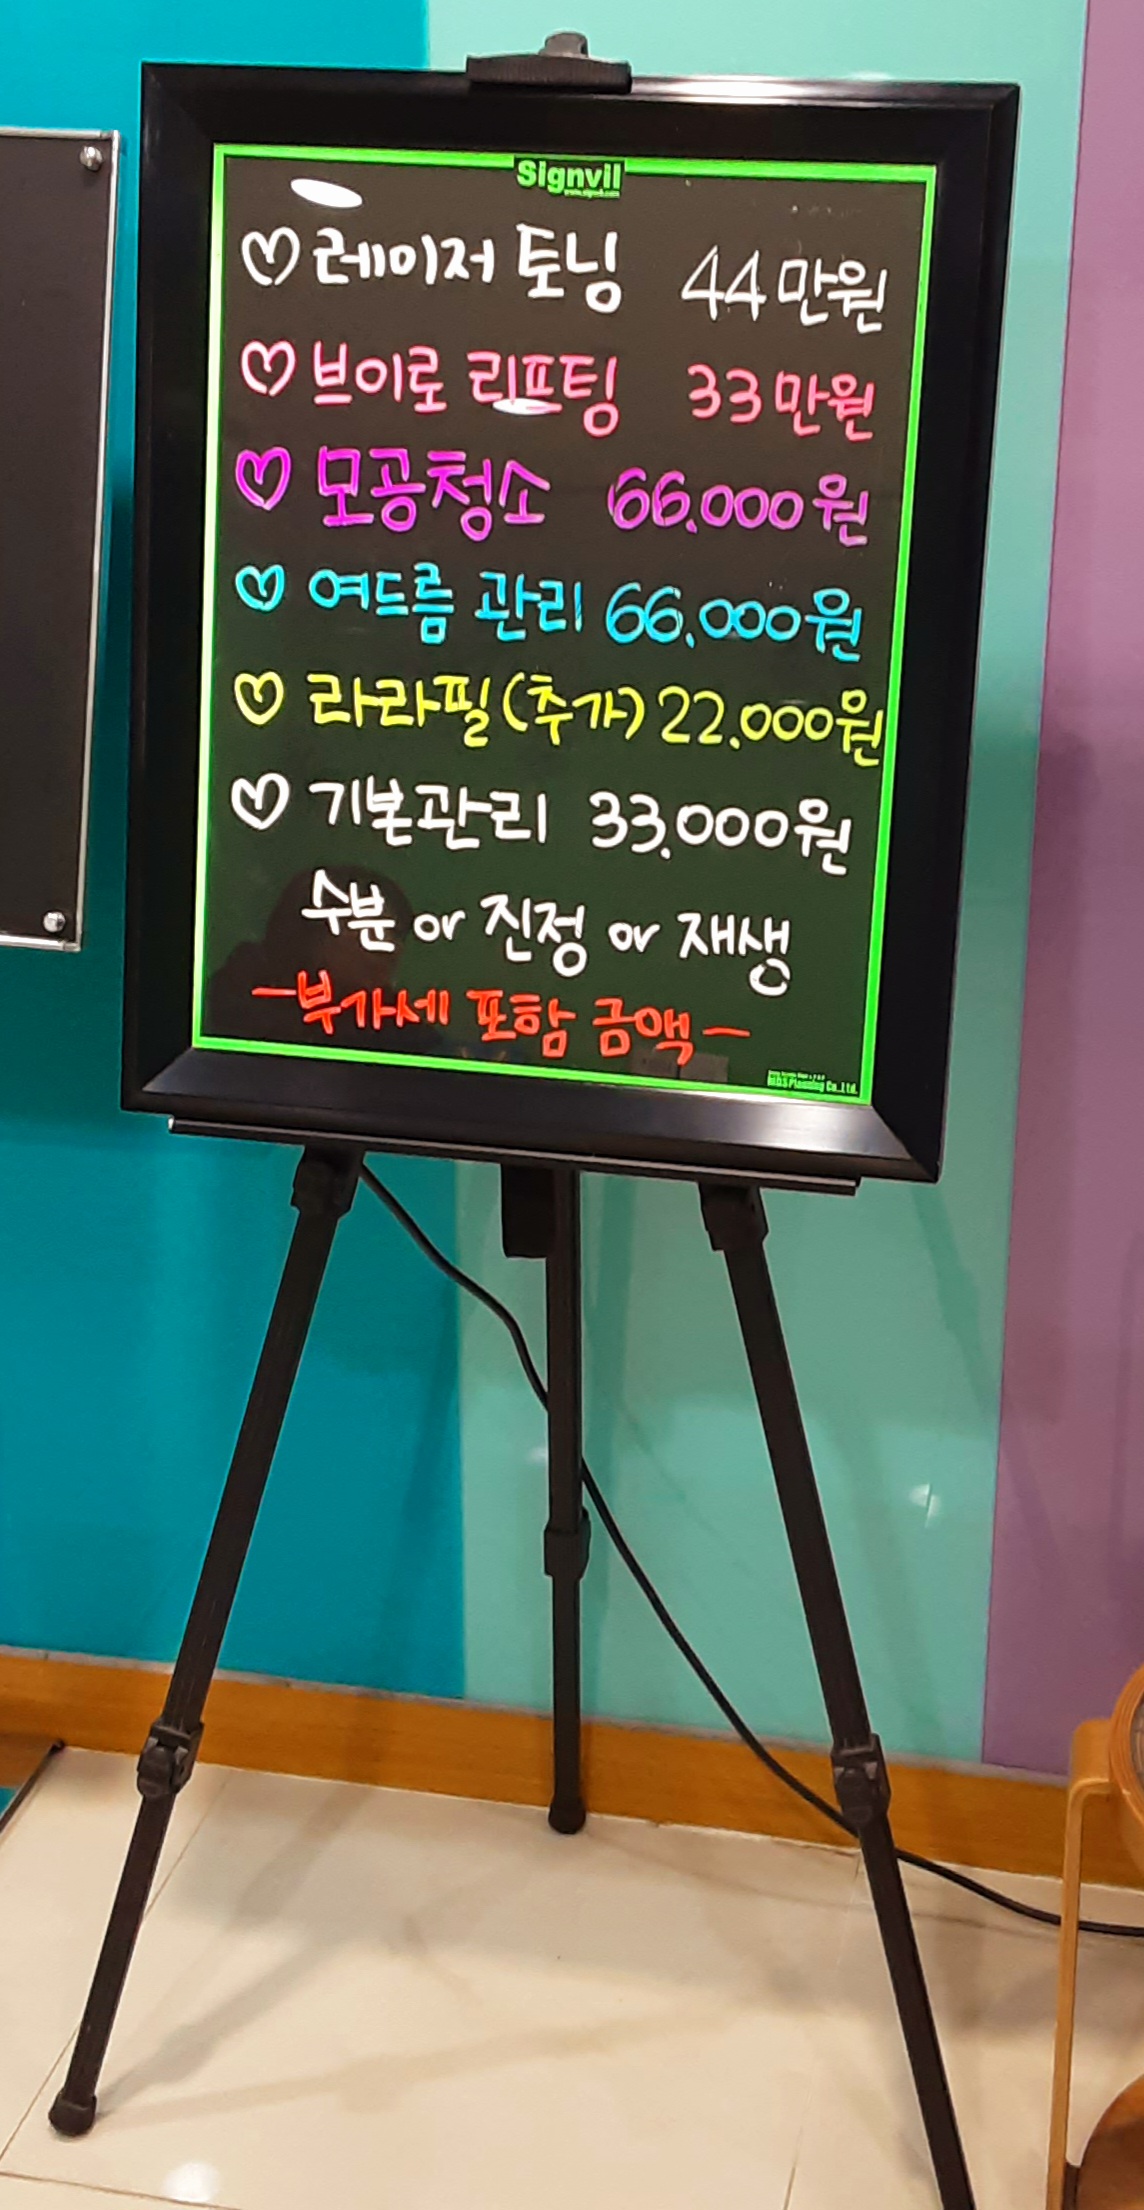 Signvil
♡ 레이저 토닝 44만원
♡ 브이로 리프팅 33만원
♡ 모공청소 66.000원
♡ 여드름 관리 66.000원
♡ 라라필(추가) 22.000원
♡ 기본관리 33.000원
수분 or 진정 or 재생
-부가세 포함 금액-